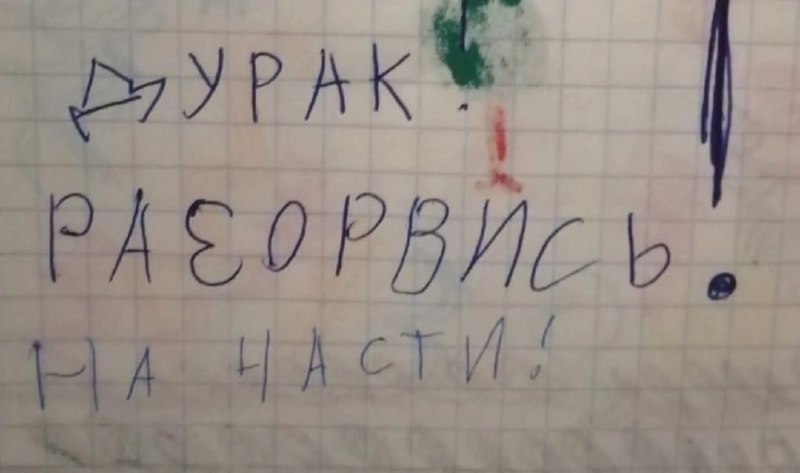 ДУРАК!
РАЗОРВИСЬ!
НА ЧАСТИ!